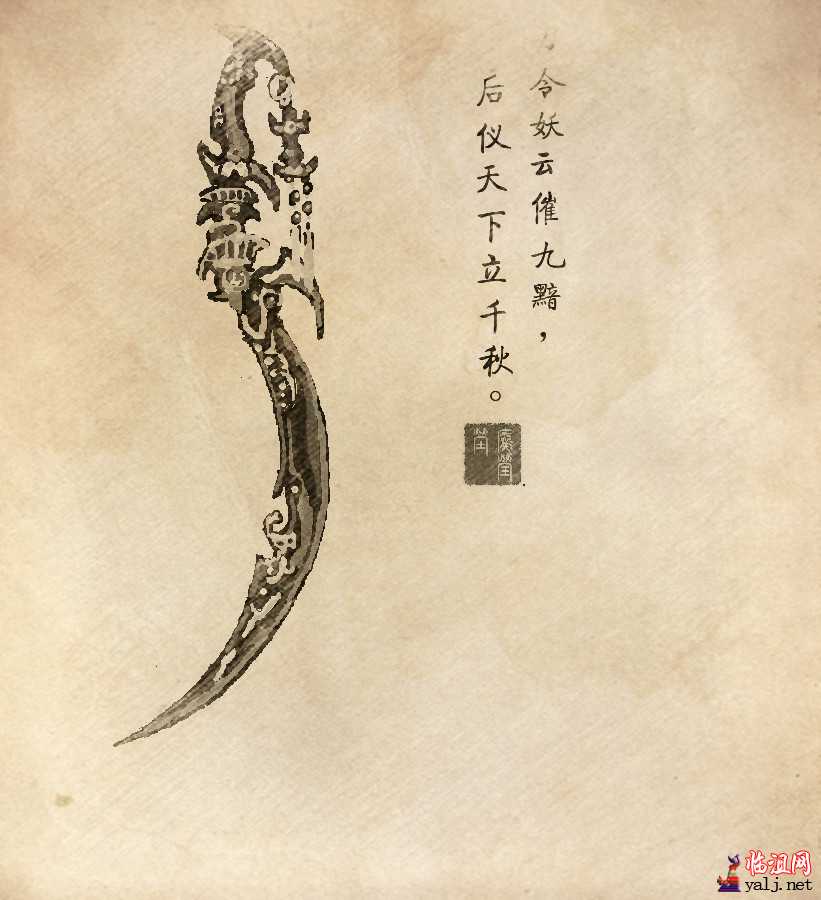 令妖云催九黯，
后仪天下立千秋。
临沮网
yalj.net